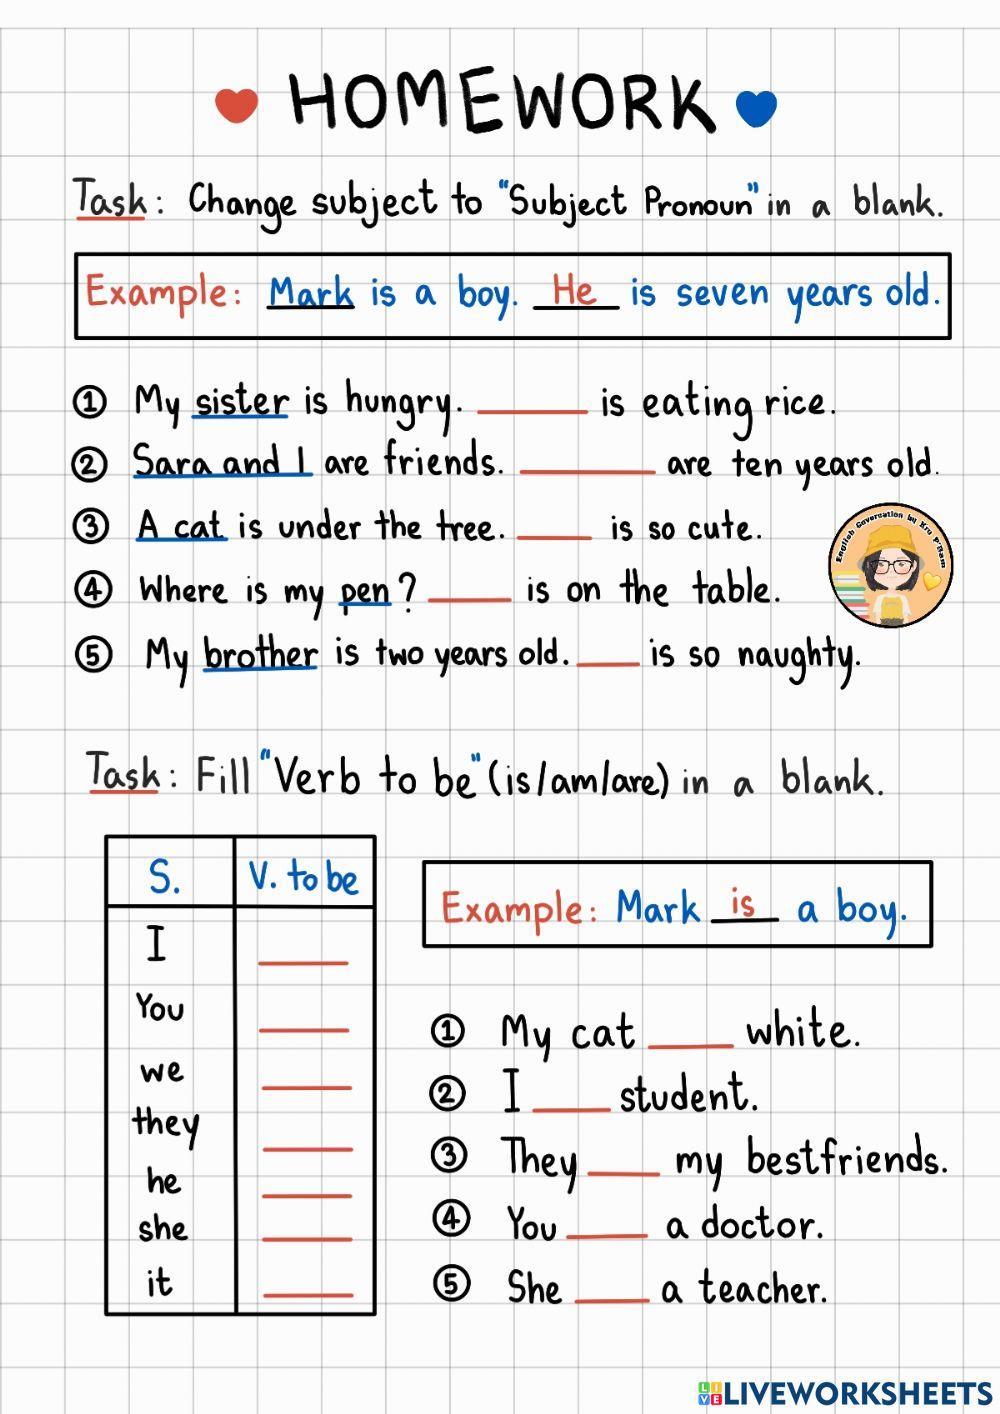 HOMEWORK
Task: Change subject to "Subject Pronoun" in a blank.
Example: Mark is a boy. He is seven years old.
① My sister is hungry. ______ is eating rice.
② Sara and I are friends. ______ are ten years old.
③ A cat is under the tree. ______ is so cute.
④ Where is my pen? ______ is on the table.
⑤ My brother is two years old. ______ is so naughty.
Task: Fill "Verb to be" (is/am/are) in a blank.
S. V. to be
I ______
You ______
we ______
they ______
he ______
she ______
it ______
Example: Mark is a boy.
① My cat ______ white.
② I ______ student.
③ They ______ my bestfriends.
④ You ______ a doctor.
⑤ She ______ a teacher.
LIVE LIVEWORKSHEETS